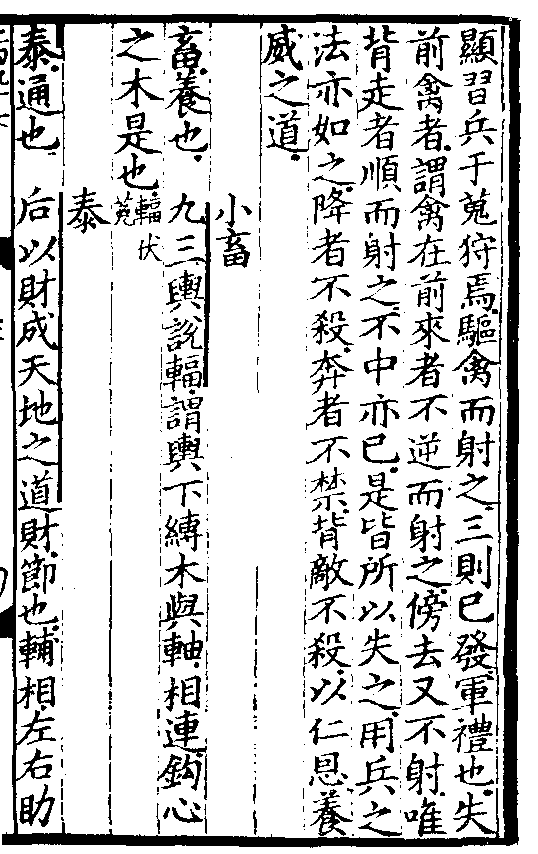 顯習兵于蒐狩焉驅禽而射之三則已發軍禮也失
前禽者謂禽在前來者不逆而射之傍去又不射唯
背走者順而射之不中亦已是皆所以失之用兵之
法亦如之降者不殺奔者不禁背敵不殺以仁恩養
威之道
小畜
畜養也 九三輿說輻謂輿下縛木與軸相連鈎心
之木是也輻伏菟
泰
泰通也 后以財成天地之道財節也輔相左右助